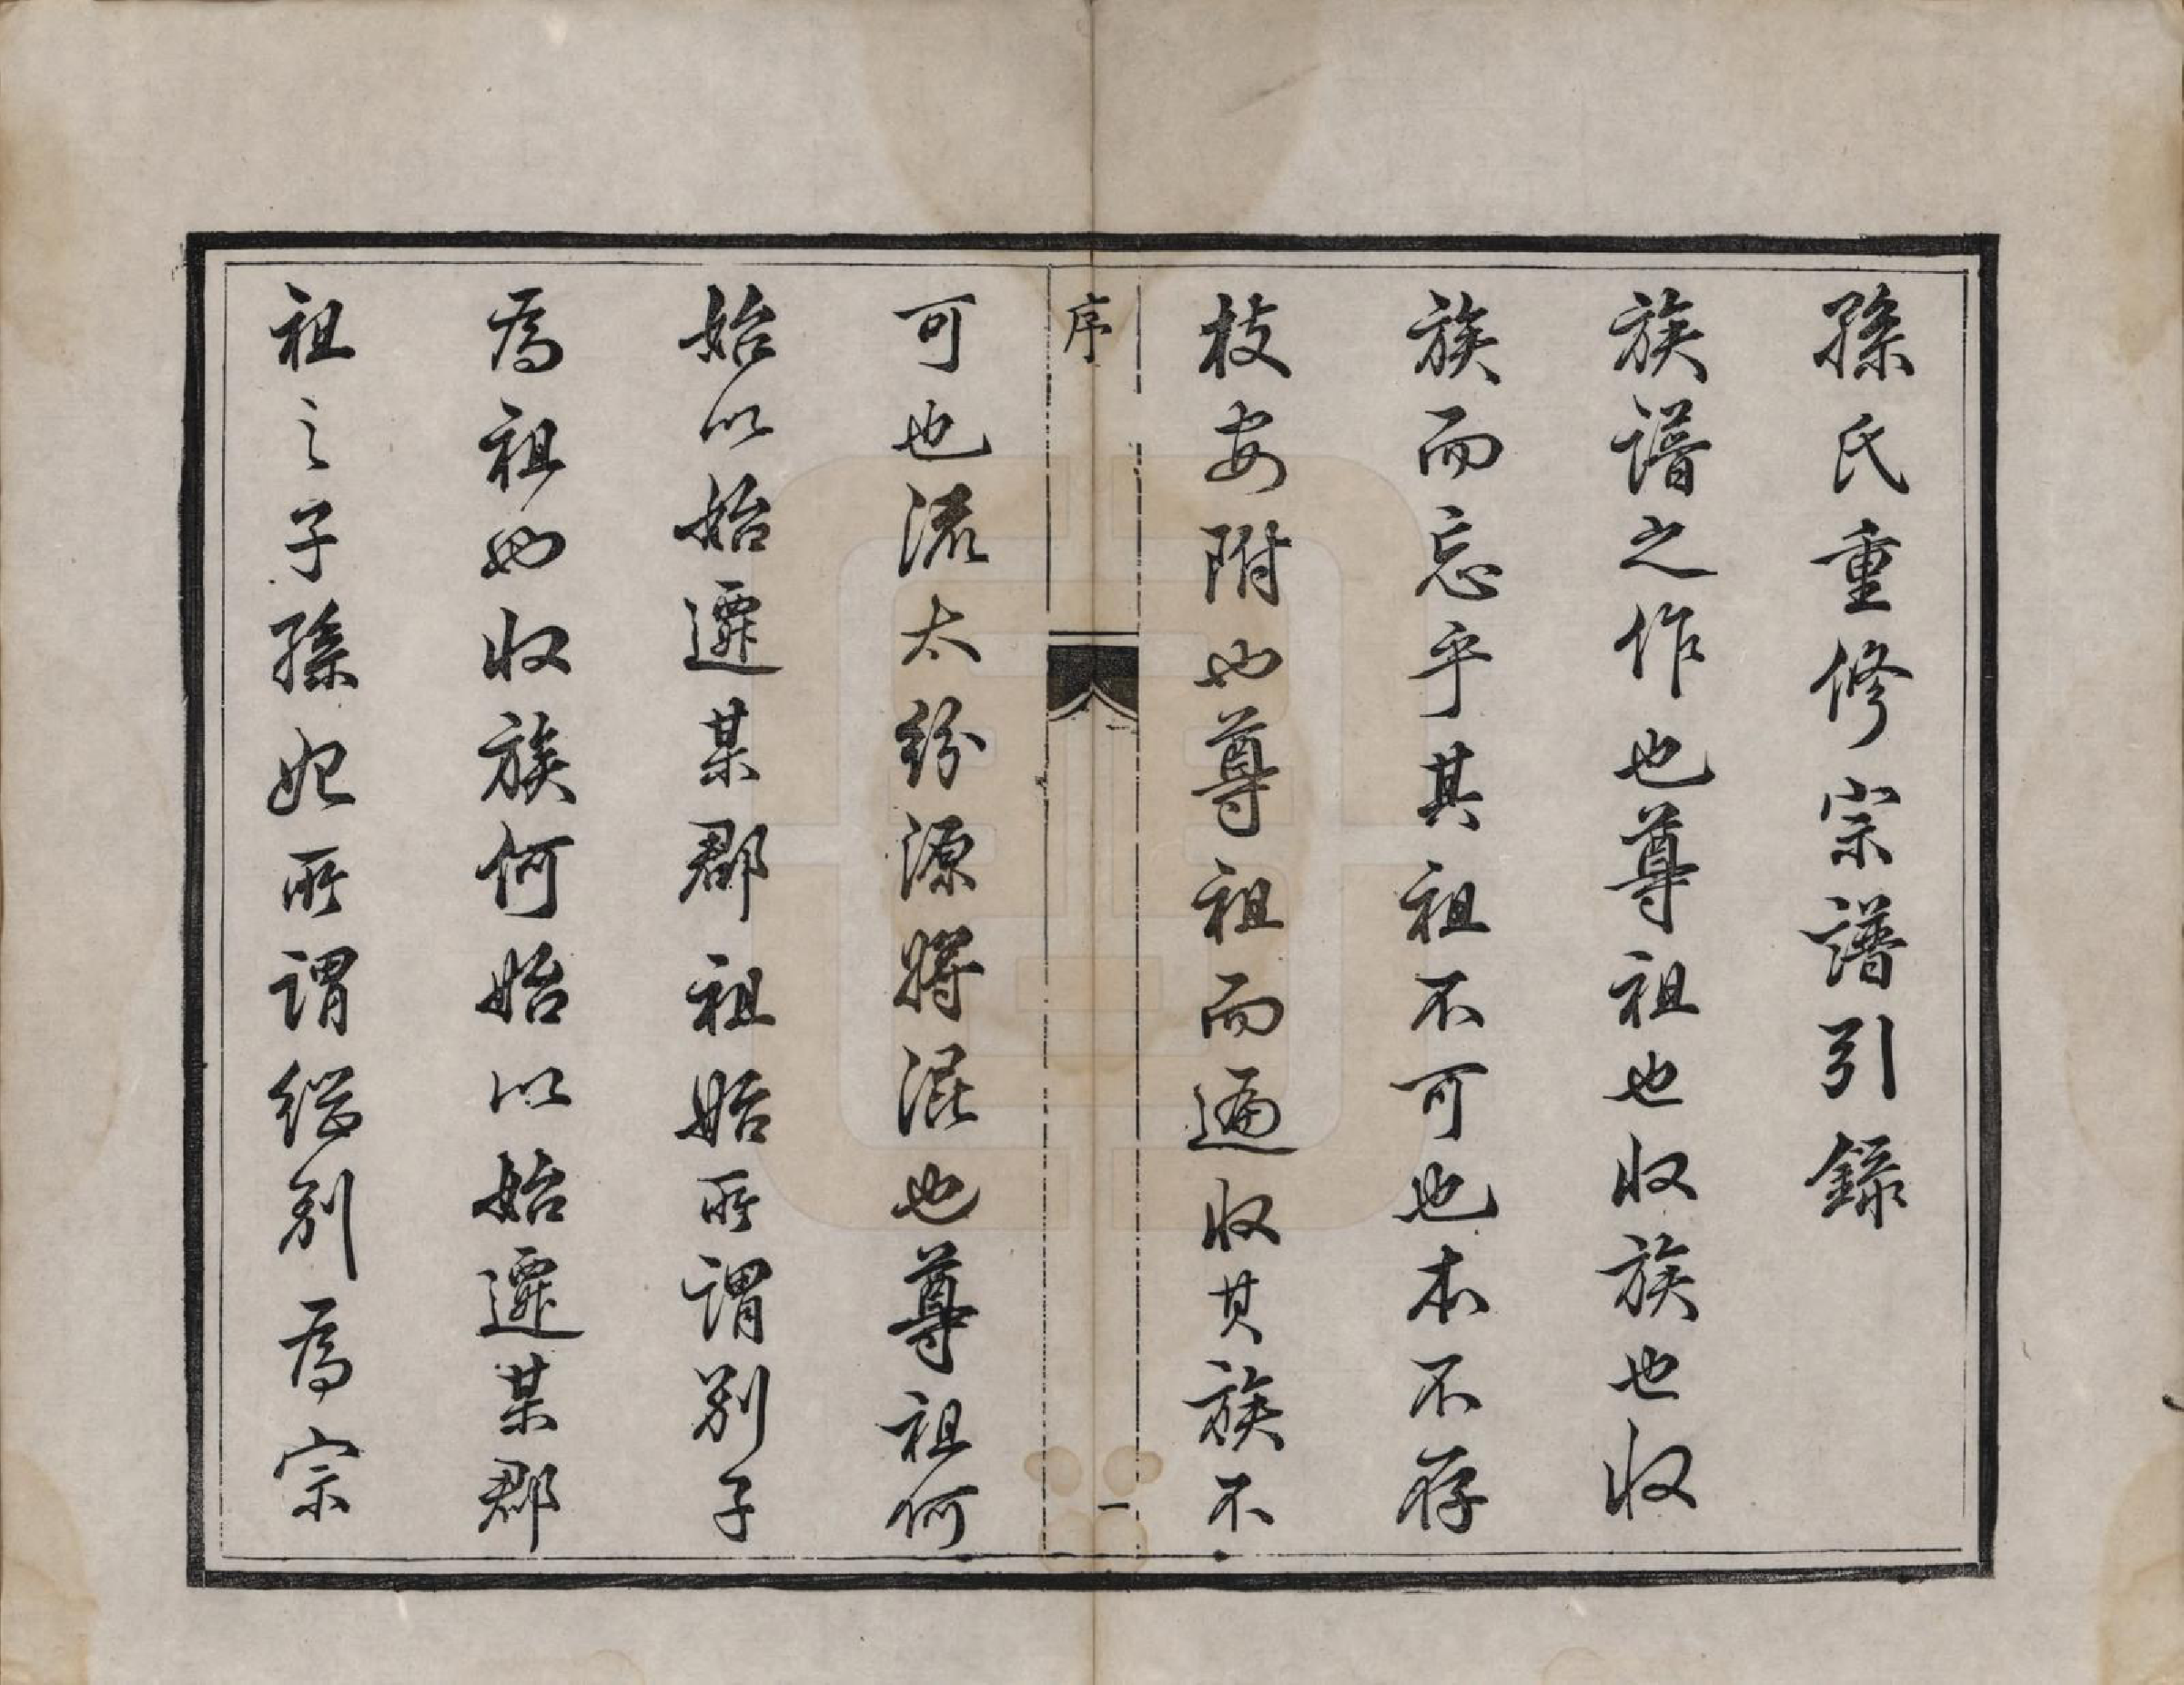 孫氏重修宗譜引錄
族譜之作也尊祖也收族也收
族而忘乎其祖不可也本不存
枝安附也尊祖而遍收其族不
序
一
可也流太紛源將混也尊祖何
始以始遷某郡祖始所謂別子
為祖也收族何始以始遷某郡
祖之子孫起所謂繼別為宗